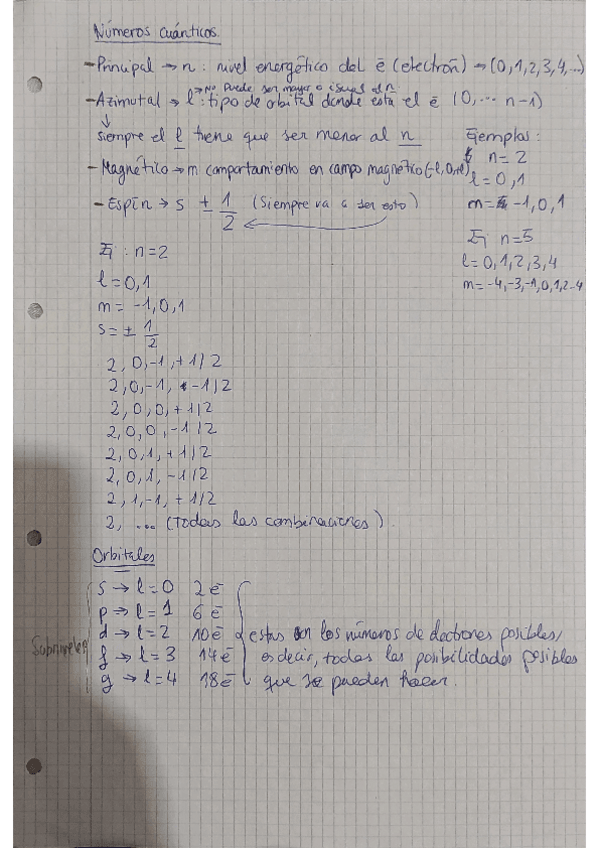 Números cuánticos.
-Principal → n: nivel energético del ē (electrón) → (0,1,2,3,4,...)
→ No puede ser mayor o igual al n
-Azimutal → l: tipo de orbital donde está el ē (0,... n-1)
↓
siempre el l tiene que ser menor al n
-Magnético → m comportamiento en campo magnético (-l,0,+l)
-Espín → s ± 1/2 (Siempre va a ser esto)
Ejemplos:
n=2
l=0,1
m= -1,0,1
Ej n=5
l=0,1,2,3,4
m=-4,-3,-1,0,1,2-4
Ej: n=2
l=0,1
m= -1,0,1
s= ± 1/2
2,0,-1,+1/2
2,0,-1, -1/2
2,0,0,+1/2
2,0,0,-1/2
2,0,1,+1/2
2,0,1,-1/2
2,1,-1,+1/2
2, ... (todas las combinaciones).
Orbitales
Subniveles
s → l=0 2ē
p → l=1 6ē
d → l=2 10ē
f → l=3 14ē
g → l=4 18ē
estos son los números de electrones posibles,
es decir, todas las posibilidades posibles
que se pueden hacer.